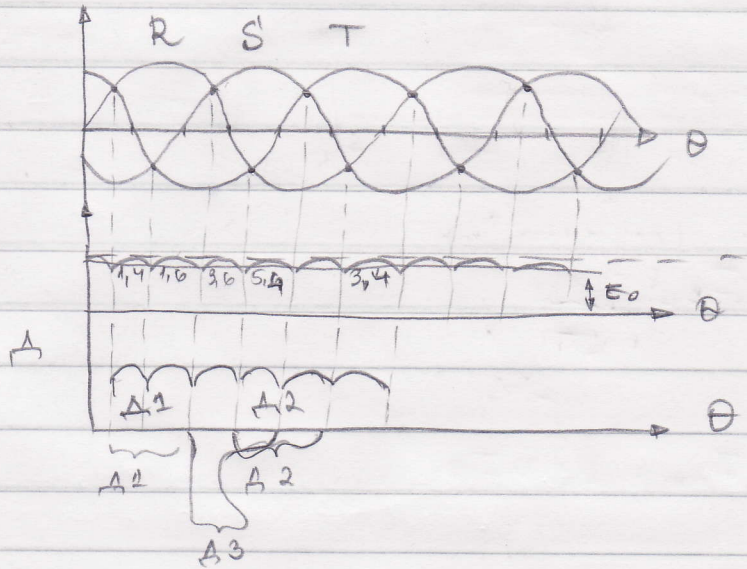 R S T
θ
1,4 1,6 3,6 5,4 3,4
E₀
θ
Д
Д1 Д2
θ
Д1 Д2
Д3